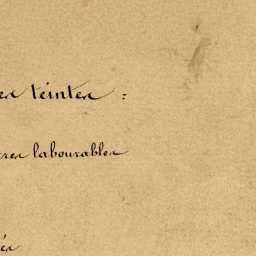 es teintes :
res labourables
és